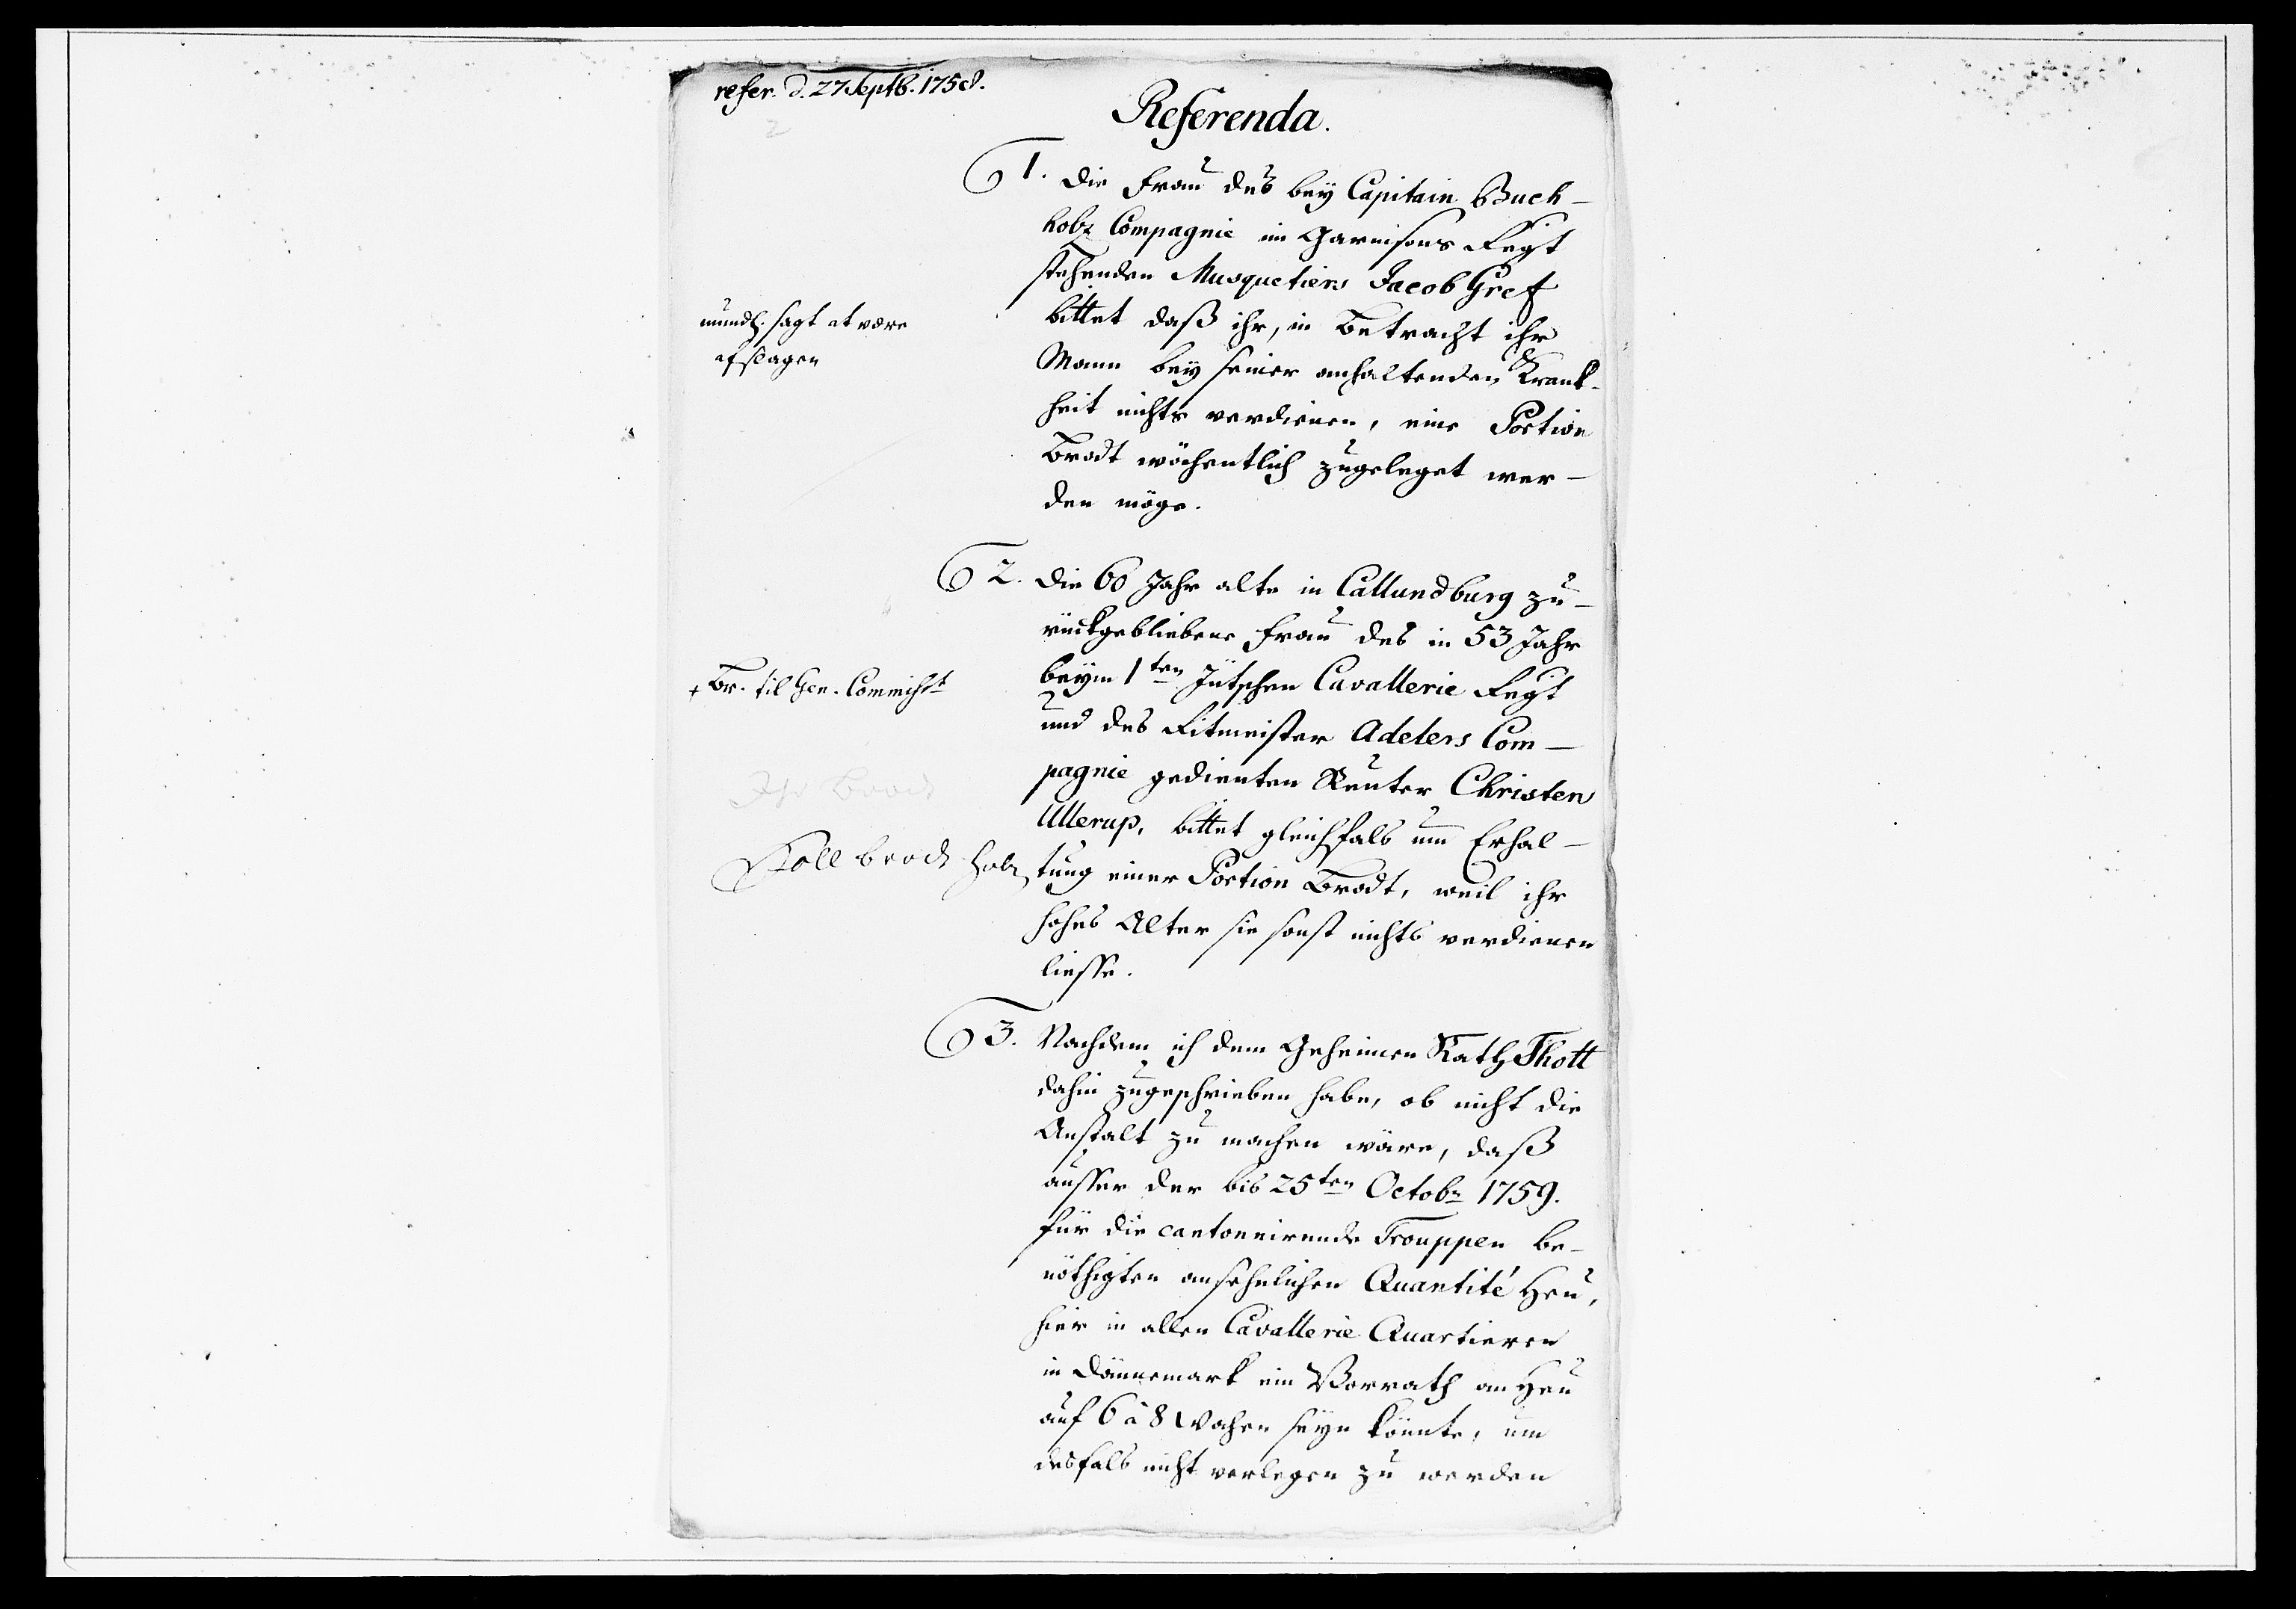 refer. d. 27 Septb. 1758.
Referenda.
1. Die Frau des bey Capitain Buch-
holz Compagnie im Garnisons Regt
stehenden Musquetiers Jacob Gref
bittet daß ihr, in Betracht ihr
Mann bey seiner anhaltenden Krank-
heit nichts verdienen, eine Portion
Brodt wöchentlich zugeleget wer-
den möge.
mundl. sagt at være
afslagen
2. Die 60 Jahr alte in Callundburg zu-
rückgebliebene Frau des in 53 Jahr
beym 1ten Jütschen Cavallerie Regt
und des Ritmeister Adelers Com-
pagnie gedienten Reuter Christen
Ullerup, bittet gleichfals um Erhal-
tung einer Portion Brodt, weil ihr
hohes Alter sie sonst nichts verdienen
liesse.
+ Br. til Gen. Commisst
Soll brodt habn
3. Nachdem ich dem Geheimen Rath Thott
dahin zugeschrieben habe, ob nicht die
Anstalt zu machen wäre, daß
ausser der bis 25ten Octobr 1759.
für die cantonnirende Trouppen be-
nöthigten ansehnlichen Quantité Heu,
hier in allen Cavallerie Quartieren
in Dännemark ein Vorrath an Heu
auf 6 à 8 Wochen seyn könnte, um
desfals nicht verlegen zu werden